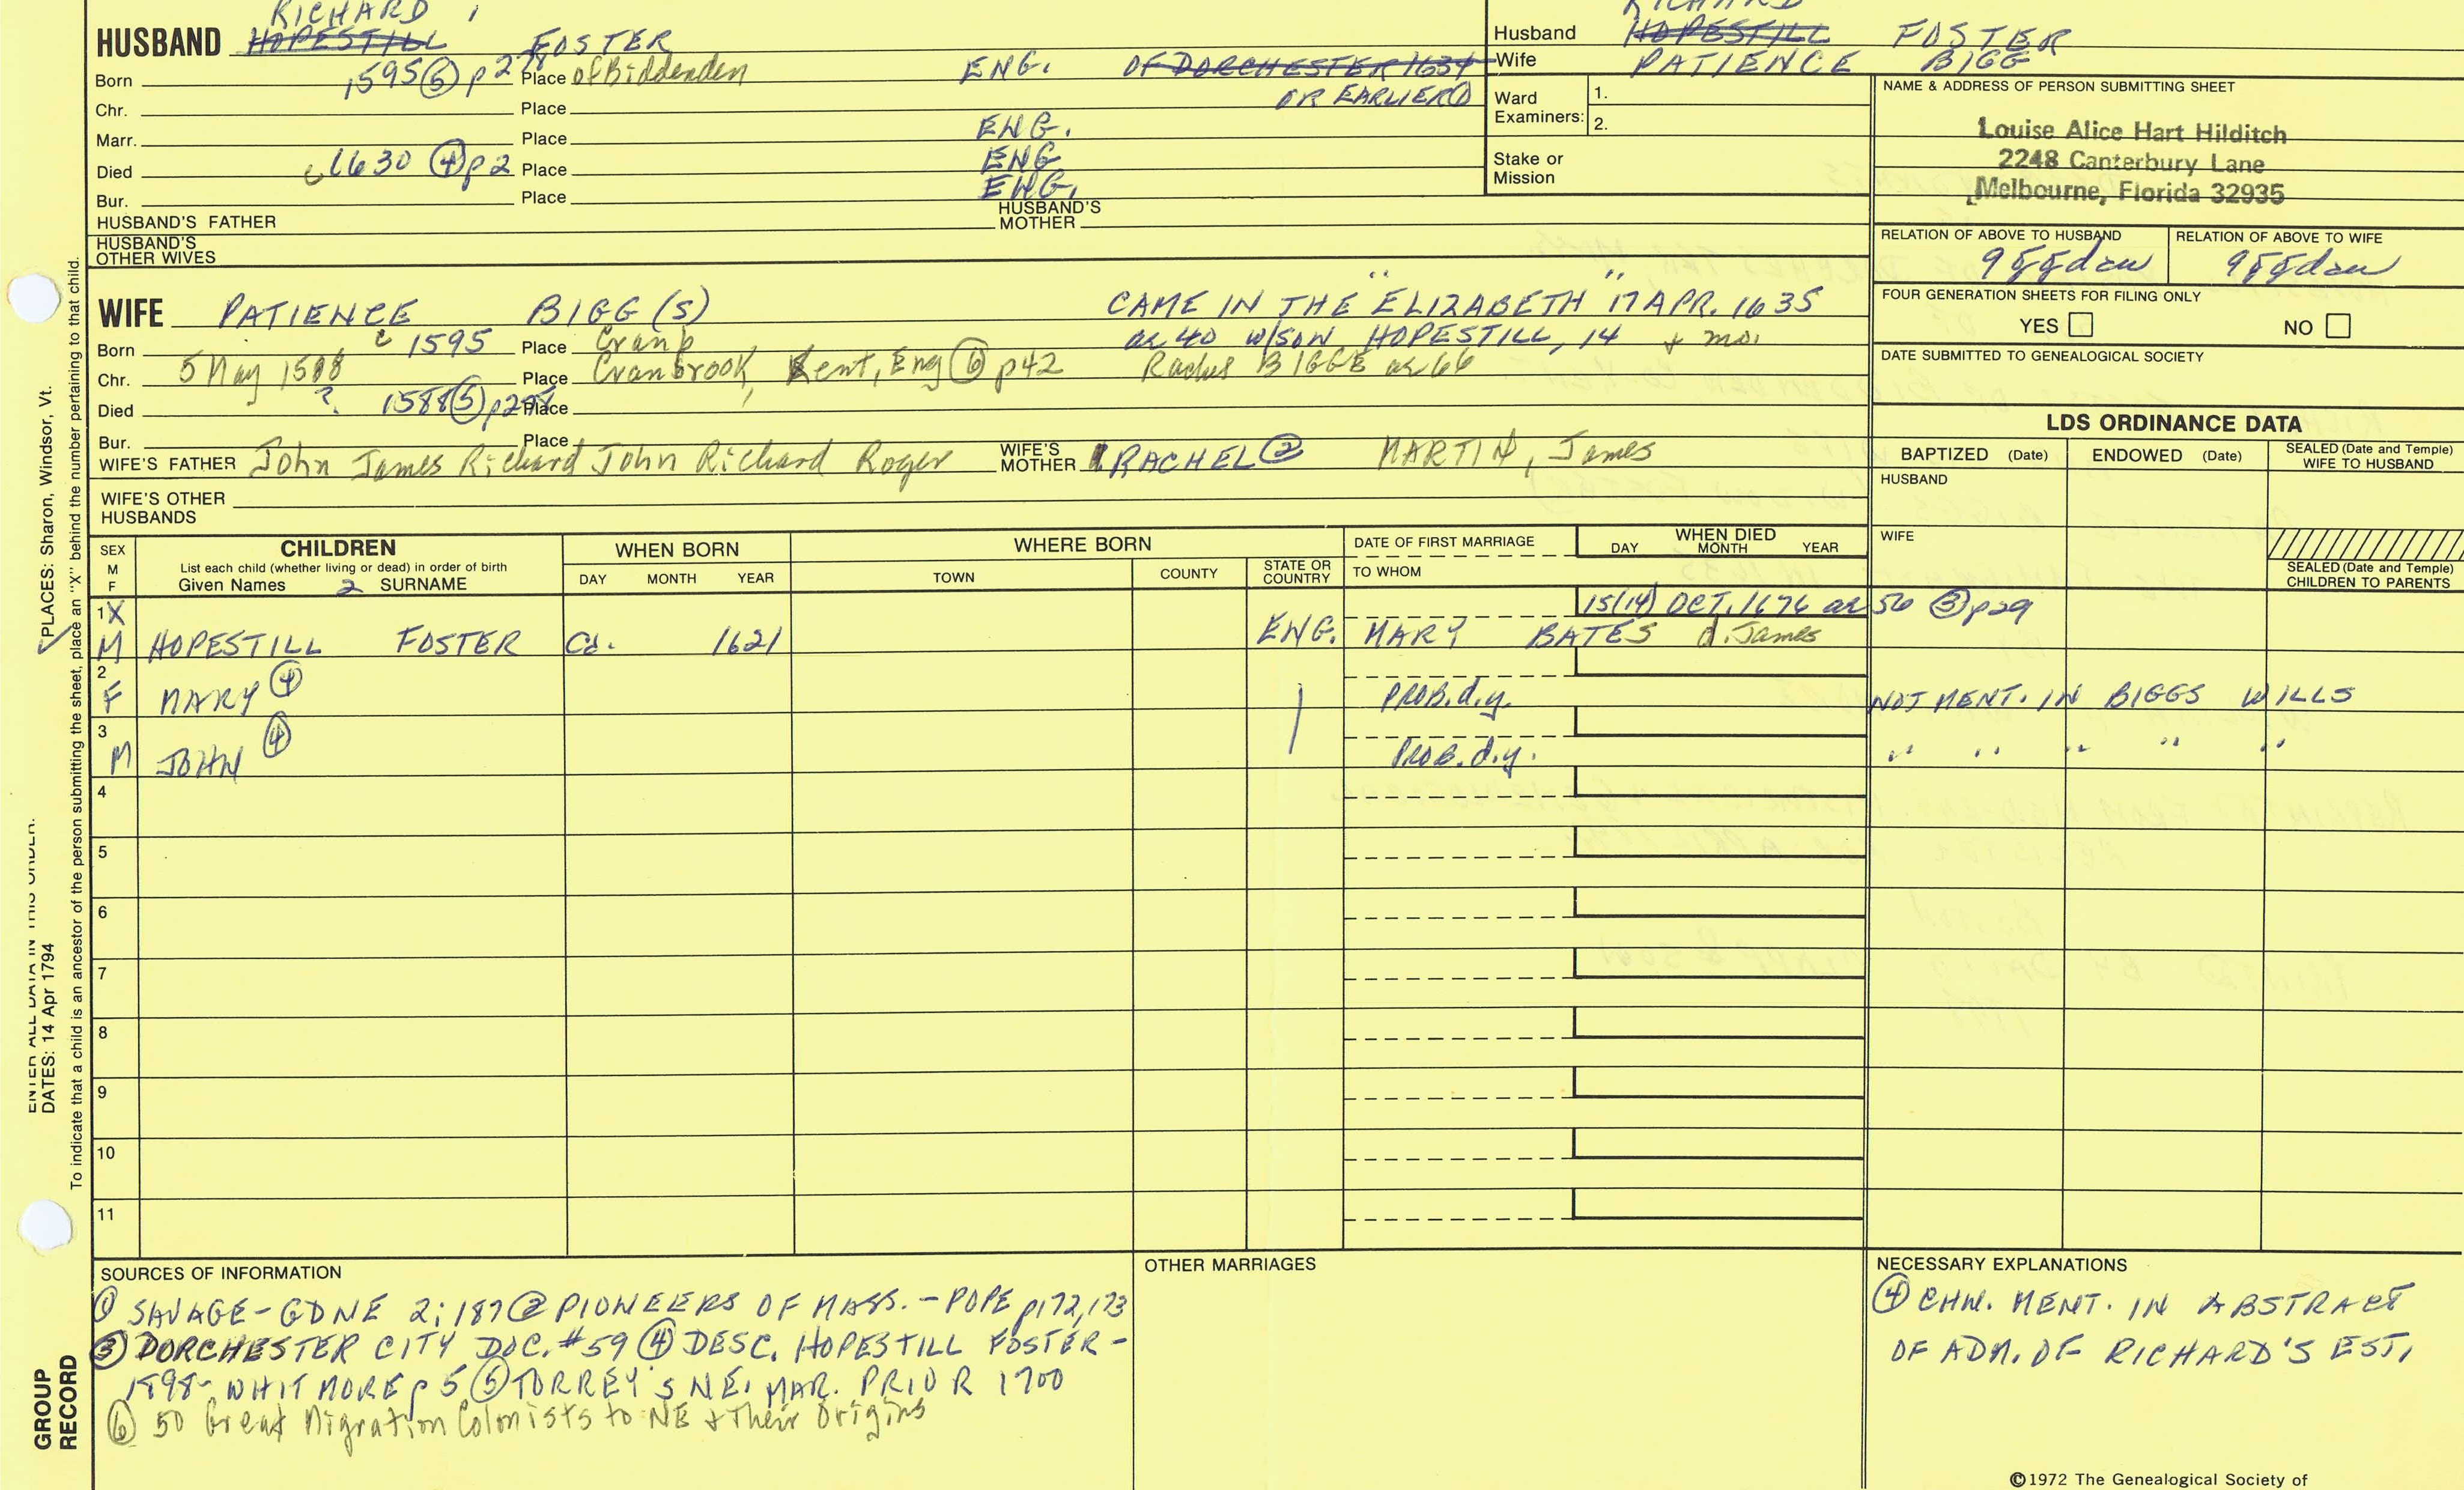 RICHARD
HUSBAND HOPESTILL FOSTER
Born 1595 ⑤ p 278 Place of Biddenden ENG. OF DORCHESTER 1634
OR EARLIER ①
Chr. Place
Marr. Place ENG.
Died c 1630 ④ p 2 Place ENG
Bur. Place ENG.
HUSBAND'S FATHER HUSBAND'S MOTHER
HUSBAND'S OTHER WIVES
RICHARD
Husband HOPESTILL FOSTER
Wife PATIENCE BIGG
Ward Examiners: 1.
2.
Stake or Mission
NAME & ADDRESS OF PERSON SUBMITTING SHEET
Louise Alice Hart Hilditch
2248 Canterbury Lane
Melbourne, Florida 32935
RELATION OF ABOVE TO HUSBAND RELATION OF ABOVE TO WIFE
9ggdau 9ggdau
FOUR GENERATION SHEETS FOR FILING ONLY
YES NO
DATE SUBMITTED TO GENEALOGICAL SOCIETY
WIFE PATIENCE BIGG (S) CAME IN THE "ELIZABETH" 17 APR. 1635
Born c 1595 Place Cranb ae 40 w/SON HOPESTILL, 14 + mo.
Chr. 5 May 1588 Place Cranbrook, Kent, Eng ⑥ p42 Rachel BIGGE ae 66
Died ? 1588 ⑤ p278 Place
Bur. Place
WIFE'S FATHER John James Richard John Richard Roger WIFE'S MOTHER RACHEL ② MARTIN, James
WIFE'S OTHER HUSBANDS
LDS ORDINANCE DATA
BAPTIZED (Date) ENDOWED (Date) SEALED (Date and Temple) WIFE TO HUSBAND
HUSBAND
WIFE
SEALED (Date and Temple) CHILDREN TO PARENTS
SEX M F
CHILDREN
List each child (whether living or dead) in order of birth
Given Names 2 SURNAME
WHEN BORN
DAY MONTH YEAR
WHERE BORN
TOWN COUNTY STATE OR COUNTRY
DATE OF FIRST MARRIAGE
TO WHOM
WHEN DIED
DAY MONTH YEAR
1 X 15(14) OCT. 1676 ae 56 ③ p29
M HOPESTILL FOSTER Ca. 1621 ENG. MARY BATES d. James
2
F MARY ④ PROB. d.y. NOT MENT. IN BIGGS WILLS
3
M JOHN ④ PROB. d.y. " " " " "
4
5
6
7
8
9
10
11
SOURCES OF INFORMATION
① SAVAGE - GDNE 2:187 ② PIONEERS OF MASS. - POPE p172,173
③ DORCHESTER CITY DOC. #59 ④ DESC. HOPESTILL FOSTER -
1898 - WHITMORE p 5 ⑤ TORREY'S NE. MAR. PRIOR 1700
⑥ 50 Great Migration Colonists to NE + Their Origins
OTHER MARRIAGES
NECESSARY EXPLANATIONS
④ CHN. MENT. IN ABSTRACT
OF ADM. OF RICHARD'S EST.
©1972 The Genealogical Society of
PLACES: Sharon, Windsor, Vt.
ENTER ALL DATA IN THIS ORDER:
DATES: 14 Apr 1794
To indicate that a child is an ancestor of the person submitting the sheet, place an "X" behind the number pertaining to that child.
GROUP
RECORD